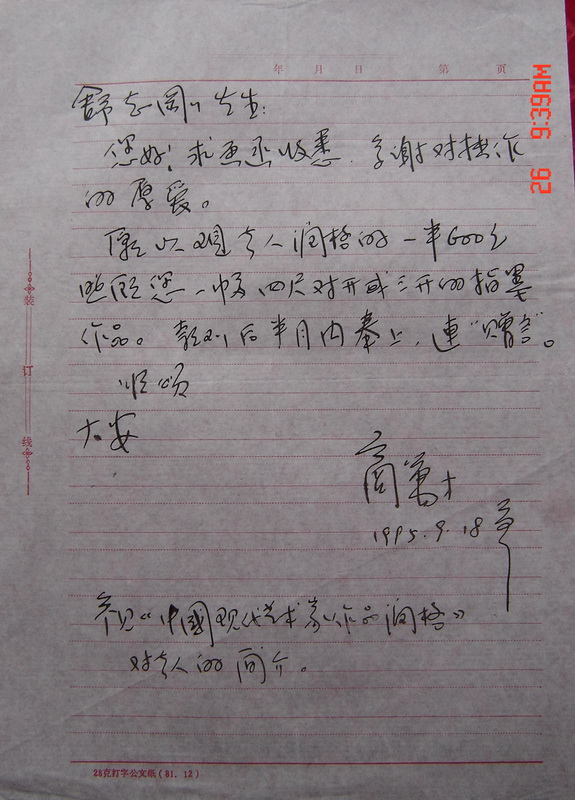 年 月 日 第 页
26 9:39AM
舒志刚先生:
您好! 求画函收悉, 多谢对拙作
的厚爱。
愿以现本人润格的一半600元
照顾您一幅四尺对开或三开的指墨
作品。款到后半月内奉上, 连“赠言”。
顺颂
大安
商万才
1995.9.18
参见《中國现代艺术家作品润格》
对本人的简介。
装
订
线
28克打字公文纸(81.12)